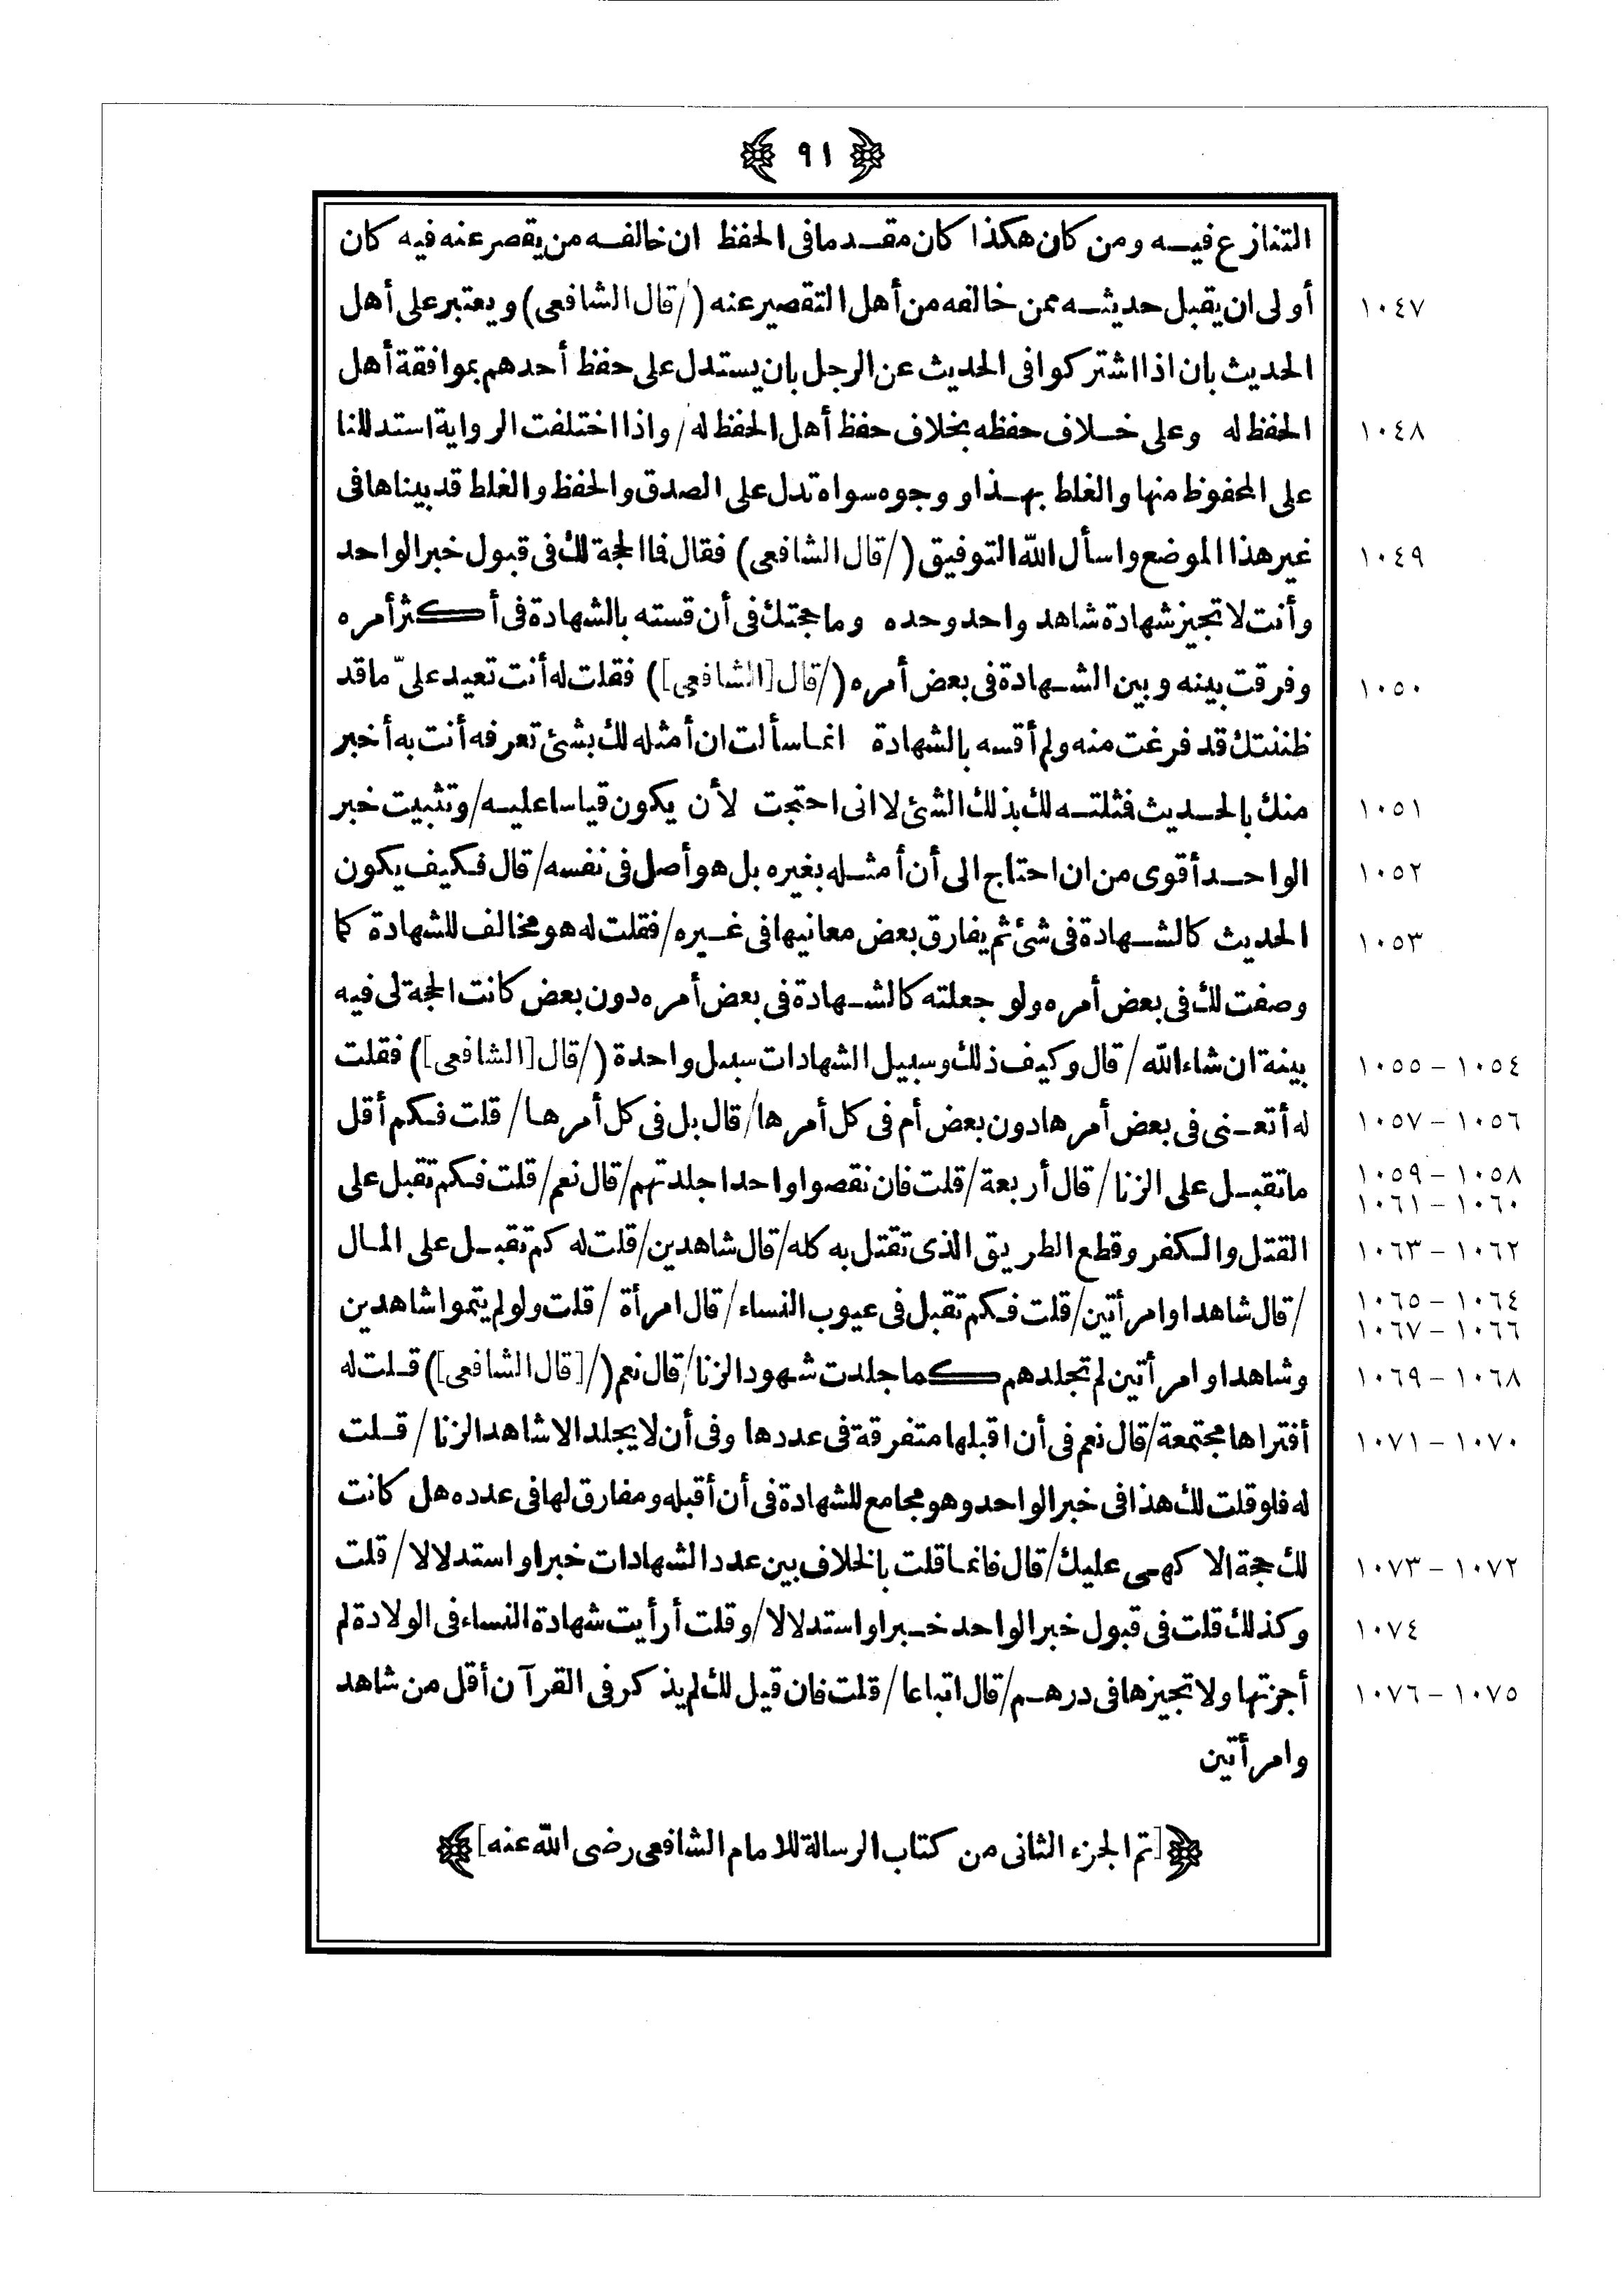 ﴿ ٩١ ﴾
التنازع فيه ومن كان هكذا كان مقدما فى الحفظ ان خالفه من يقصر عنه فيه كان
أولى ان يقبل حديثه ممن خالفه من أهل التقصير عنه (/قال الشافعى) ويعتبر على أهل ١٠٤٧
الحديث بان اذا اشتركوا فى الحديث عن الرجل بان يستدل على حفظ أحدهم بموافقة أهل
الحفظ له وعلى خلاف حفظه بخلاف حفظ أهل الحفظ له/ واذا اختلفت الرواية استدللنا ١٠٤٨
على المحفوظ منها والغلط بهذا ووجوه سواه تدل على الصدق والحفظ والغلط قد بيناها فى
غير هذا الموضع واسأل الله التوفيق (/قال الشافعى) فقال فما الحجة لك فى قبول خبر الواحد ١٠٤٩
وأنت لا تجيز شهادة شاهد واحد وحده وما حجتك فى أن قسته بالشهادة فى أكثر أمره
وفرقت بينه وبين الشهادة فى بعض أمره (/قال [الشافعى]) فقلت له أنت تعيد علىّ ما قد ١٠٥٠
ظننتك قد فرغت منه ولم أقسه بالشهادة انما سألت ان أمثله لك بشئ تعرفه أنت به أخبر
منك بالحديث فمثلته لك بذلك الشئ لا انى احتجت لأن يكون قياسا عليه/وتثبيت خبر ١٠٥١
الواحد أقوى من ان احتاج الى أن أمثله بغيره بل هو أصل فى نفسه/قال فكيف يكون ١٠٥٢
الحديث كالشهادة فى شئ ثم يفارق بعض معانيها فى غيره/فقلت له هو مخالف للشهادة كما ١٠٥٣
وصفت لك فى بعض أمره ولو جعلته كالشهادة فى بعض أمره دون بعض كانت الحجة لى فيه
بينة ان شاء الله / قال وكيف ذلك وسبيل الشهادات سبيل واحدة (/قال [الشافعى]) فقلت ١٠٥٤ – ١٠٥٥
له أتعنى فى بعض أمرها دون بعض أم فى كل أمرها/قال بل فى كل أمرها/ قلت فكم أقل ١٠٥٦ – ١٠٥٧
ما تقبل على الزنا/ قال أربعة/قلت فان نقصوا واحدا جلدتهم/قال نعم/قلت فكم تقبل على ١٠٥٨ – ١٠٥٩ ١٠٦٠ – ١٠٦١
القتل والكفر وقطع الطريق الذى تقتل به كله/قال شاهدين/قلت له كم تقبل على المال ١٠٦٢ – ١٠٦٣
/قال شاهدا وامرأتين/قلت فكم تقبل فى عيوب النساء/قال امرأة /قلت ولو لم يتموا شاهدين ١٠٦٤ – ١٠٦٥ ١٠٦٦ – ١٠٦٧
وشاهدا وامرأتين لم تجلدهم كما جلدت شهود الزنا/قال نعم (/[قال الشافعى]) قلت له ١٠٦٨ – ١٠٦٩
أفتراها مجتمعة/قال نعم فى أن اقبلها متفرقة فى عددها وفى أن لا يجلد الا شاهد الزنا / قلت ١٠٧٠ – ١٠٧١
له فلو قلت لك هذا فى خبر الواحد وهو مجامع للشهادة فى أن أقبله ومفارق لها فى عدده هل كانت
لك حجة الا كهى عليك/قال فانما قلت بالخلاف بين عدد الشهادات خبرا واستدلالا/قلت ١٠٧٢ – ١٠٧٣
وكذلك قلت فى قبول خبر الواحد خبرا واستدلالا/وقلت أرأيت شهادة النساء فى الولادة لم ١٠٧٤
أجزتها ولا تجيزها فى درهم/قال اتباعا/قلت فان قيل لك لم يذكر فى القرآن أقل من شاهد ١٠٧٥ – ١٠٧٦
وامرأتين
﴿[تم الجزء الثانى من كتاب الرسالة للامام الشافعى رضى الله عنه]﴾